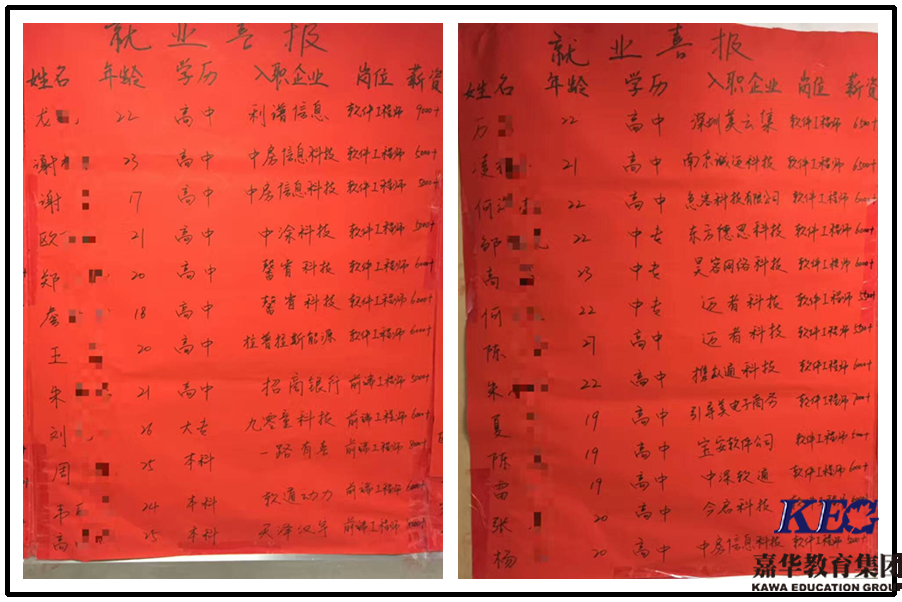 就业喜报
姓名 年龄 学历 入职企业 岗位 薪资
尤 22 高中 利谱信息 软件工程师 9000+
谢 23 高中 中房信息科技 软件工程师 5000+
谢 17 高中 中房信息科技 软件工程师 5000+
欧 21 高中 中涂科技 软件工程师 5000+
郑 20 高中 馨育科技 软件工程师 6000+
詹 18 高中 馨育科技 软件工程师 6000+
王 20 高中 软件工程师 6000+
朱 21 高中 招商银行 前端工程师 5000+
刘 大专 九零壹科技 前端工程师 6000+
周 25 本科 一路有喜 前端工程师
韦 24 本科 软通动力 前端工程师
高 25 本科 前端工程师
就业喜报
姓名 年龄 学历 入职企业 岗位 薪资
万 22 高中 深圳美云集 软件工程师 6500+
凌 21 高中 南京 科技 软件工程师 6500+
何 22 高中 科技有限公司 软件工程师 6000+
邹 22 中专 东方德思科技 软件工程师 6000+
高 23 中专 昊容网络科技 软件工程师 6000+
何 22 中专 迈者科技 软件工程师 5500+
陈 21 高中 迈者科技 软件工程师 5500+
朱 22 高中 携众通科技 软件工程师 6000+
夏 19 高中 引导美电子商务 软件工程师 7000+
陈 19 高中 宝安软件公司 软件工程师
雷 19 高中 中深软通 软件工程师 6000+
张 20 高中 今启科技 软件工程师
杨 20 高中 中房信息科技 软件工程师
KEG
嘉华教育集团
KAWA EDUCATION GROUP